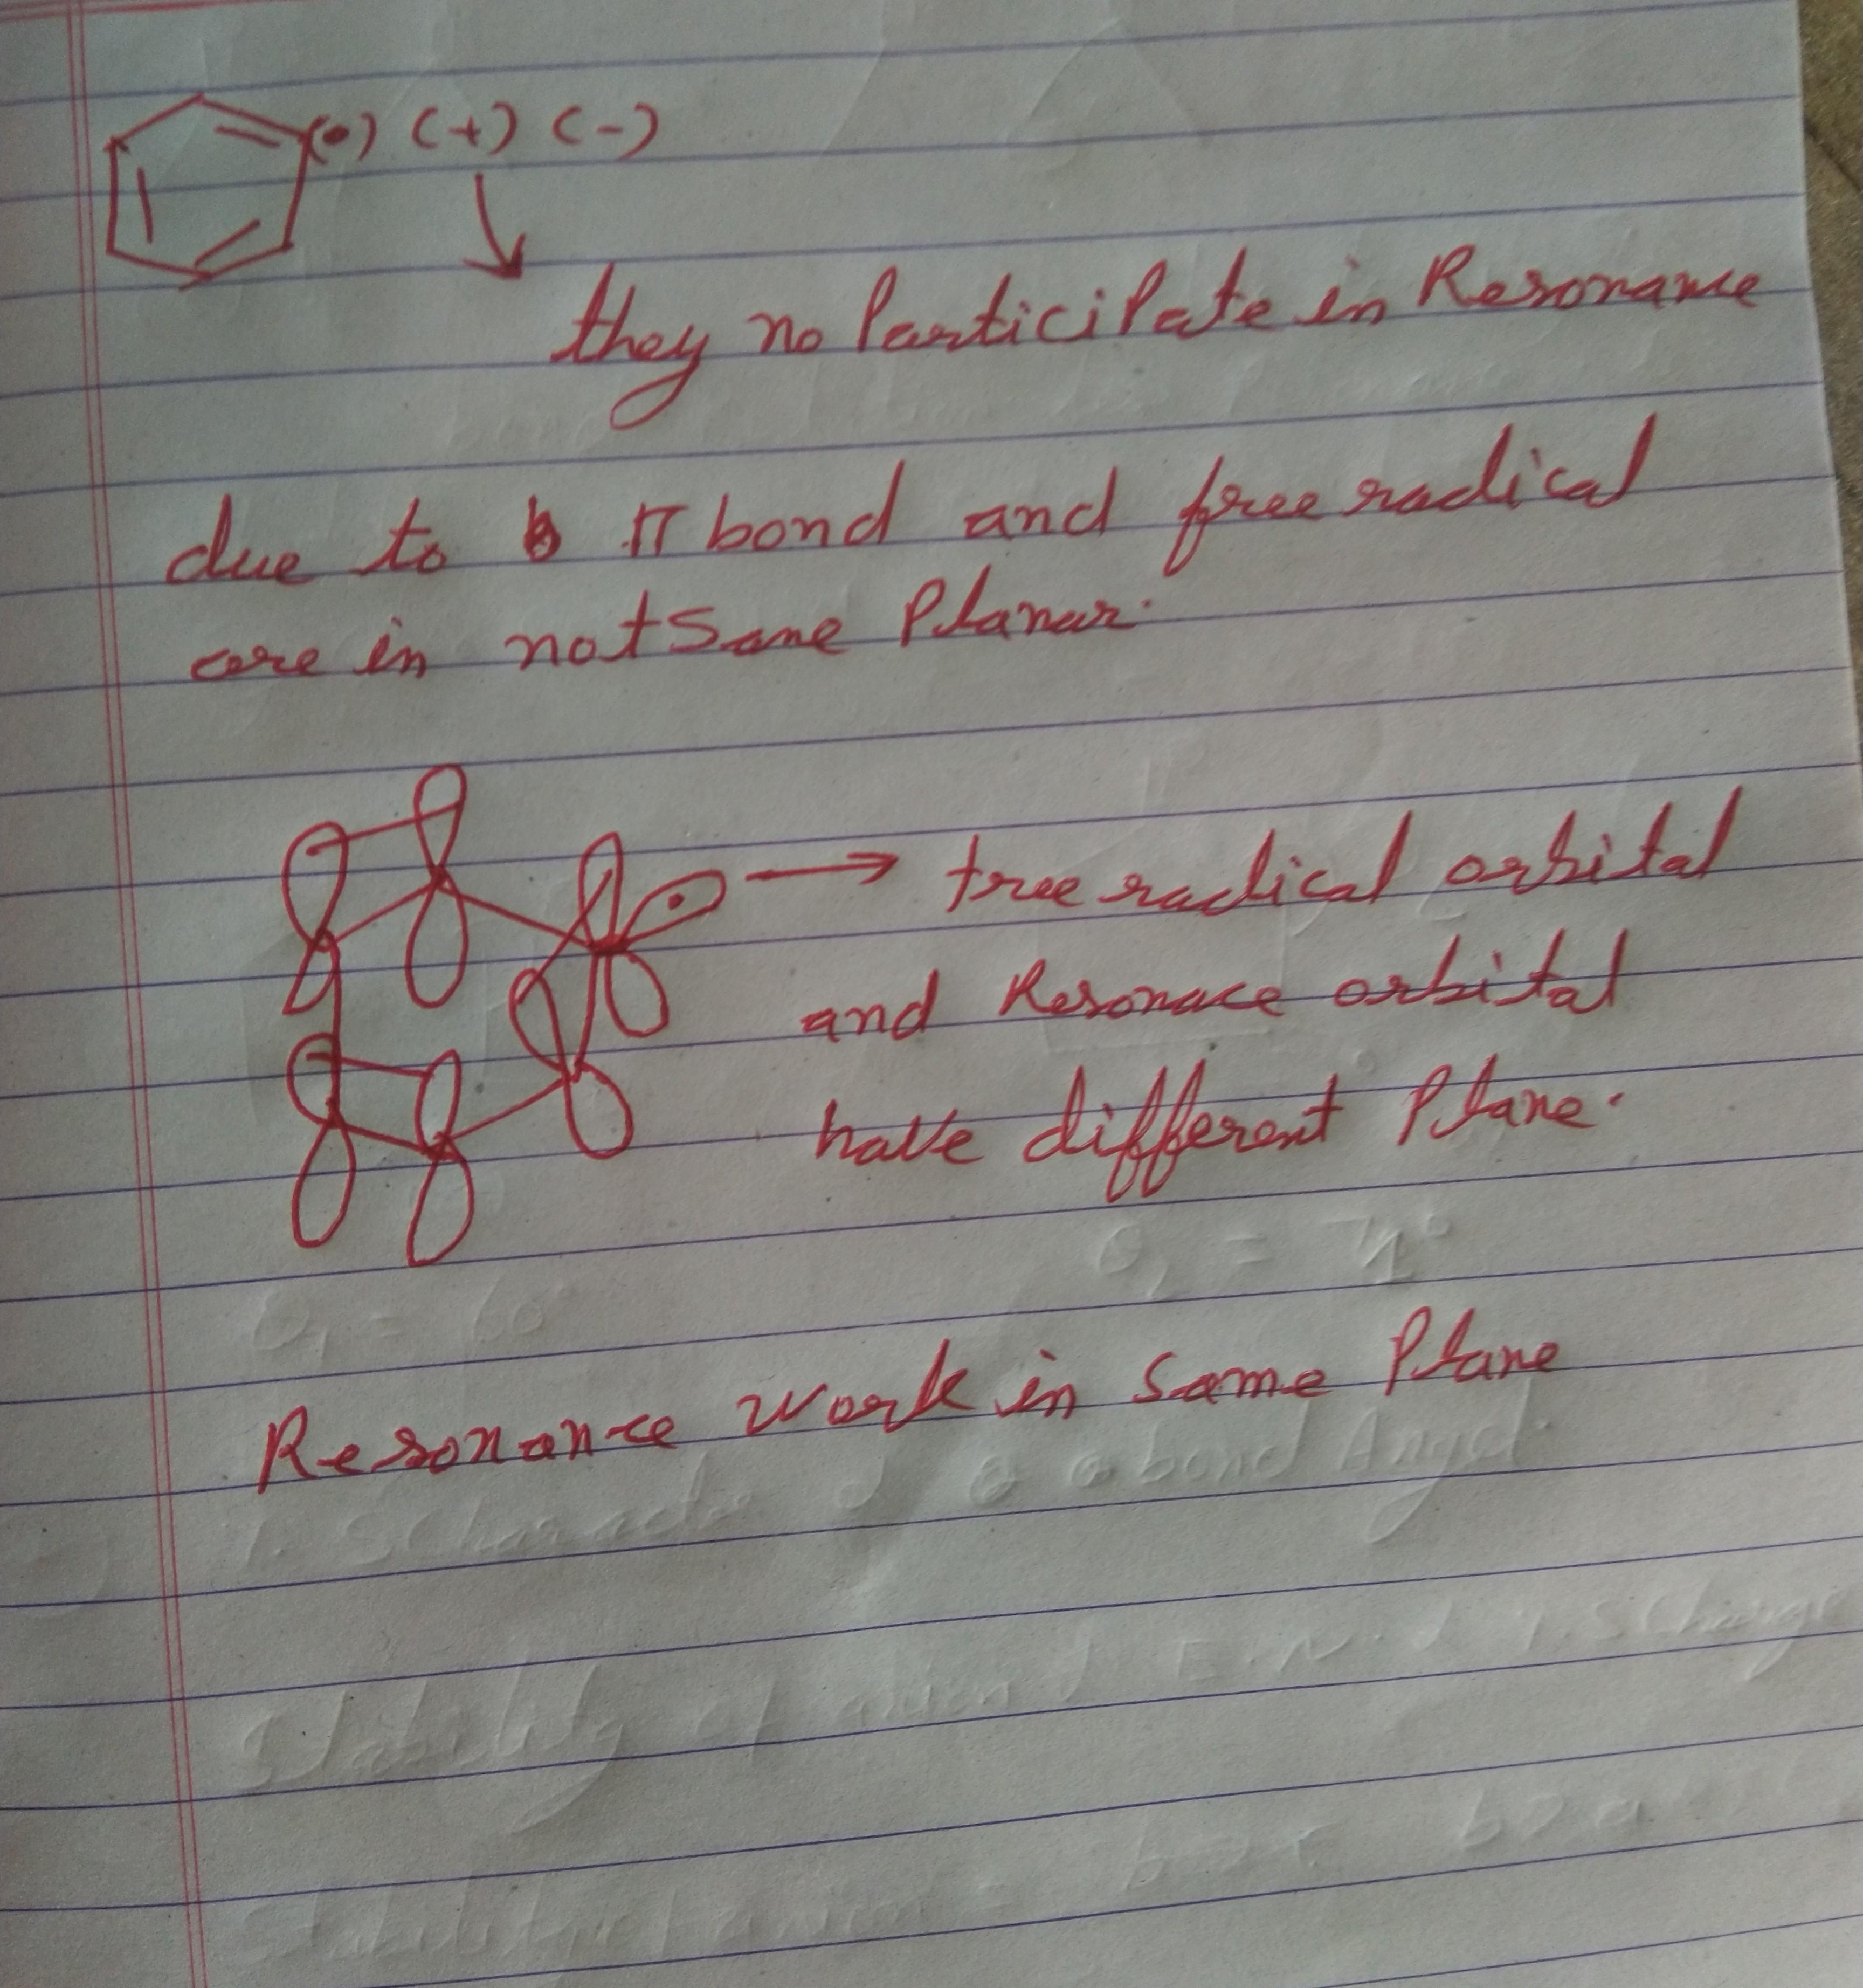 (•) (+) (-)
they no Participate in Resonance
due to π bond and free radical
are in not Same Planar.
→ free radical orbital
and Resonace orbital
have different Plane.
Resonance work in Same Plane